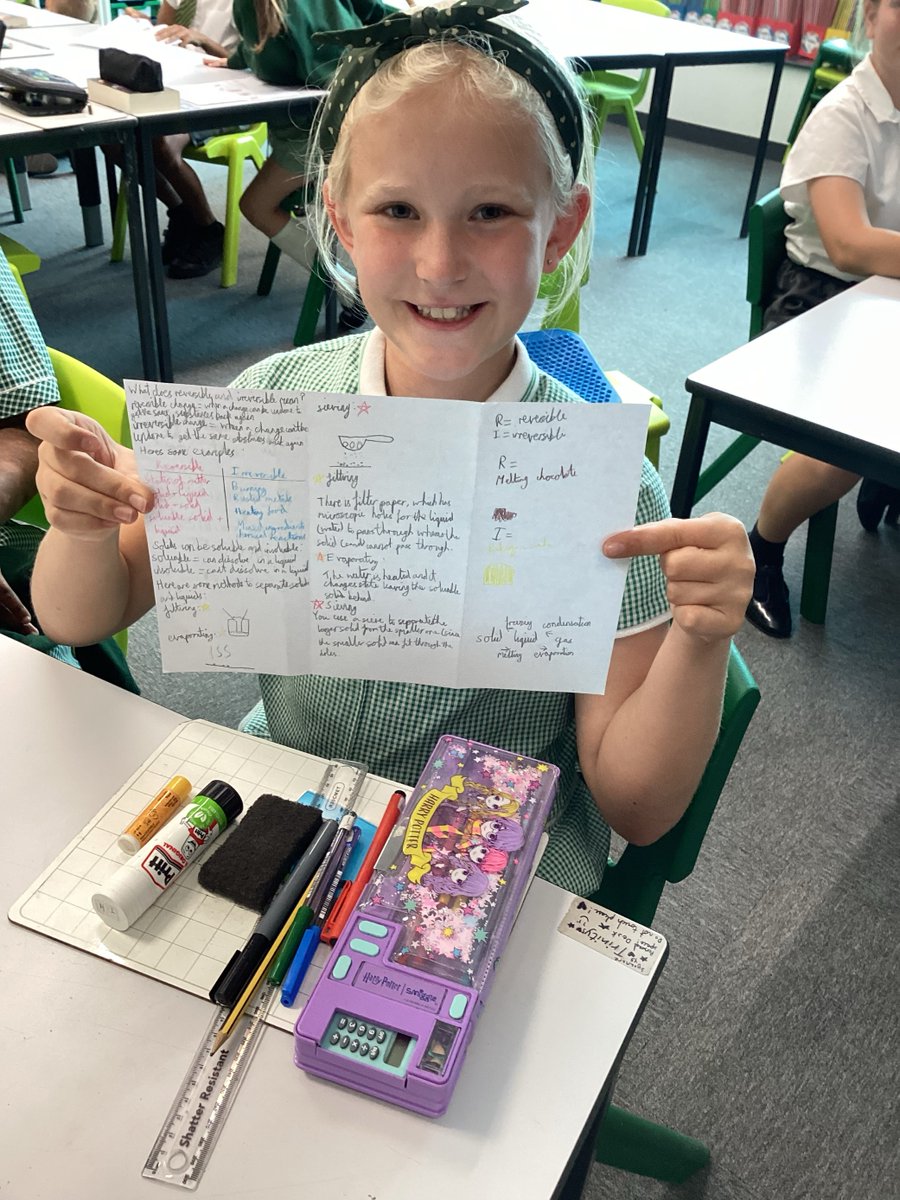 What does reversibly and irreversible mean?
reversible change = when a change can be undone to
get the same substances back again
irreversible change = When a change cant be
undone to get the same substances back again
Heres some examples:
Reversible
States of matter
solid → liquid
soluable solid +
liquid
Irreversible
Burning
Rusting metals
Heating food
Mixed ingredients
chemical reactions
Solids can be soluble and insoluble.
soluable = can dissolve in a liquid
insoluable = can't dissolve in a liquid
Here are some methods to separate solids
and liquids:
filtering:
evaporating:
sieving:
filtering
There is filter paper, which has
microscopic holes for the liquid
(water) to pass through whereas the
solid (sand) cannot pass through.
Evaporating
The water is heated and it
changes state leaving the soluable
solid behind.
Sieving
You use a sieve to separate the
larger solid from the smaller one (since
the smaller solid can fit through the
holes.
R = reversible
I = irreversible
R =
Melting chocolate
I =
freezing condensation
solid liquid gas
melting evaporation
Pritt
ORIGINAL
HARRY POTTER
Harry Potter | Smiggle
Shatter Resistant
Trinity's
Desk
Do not touch please!